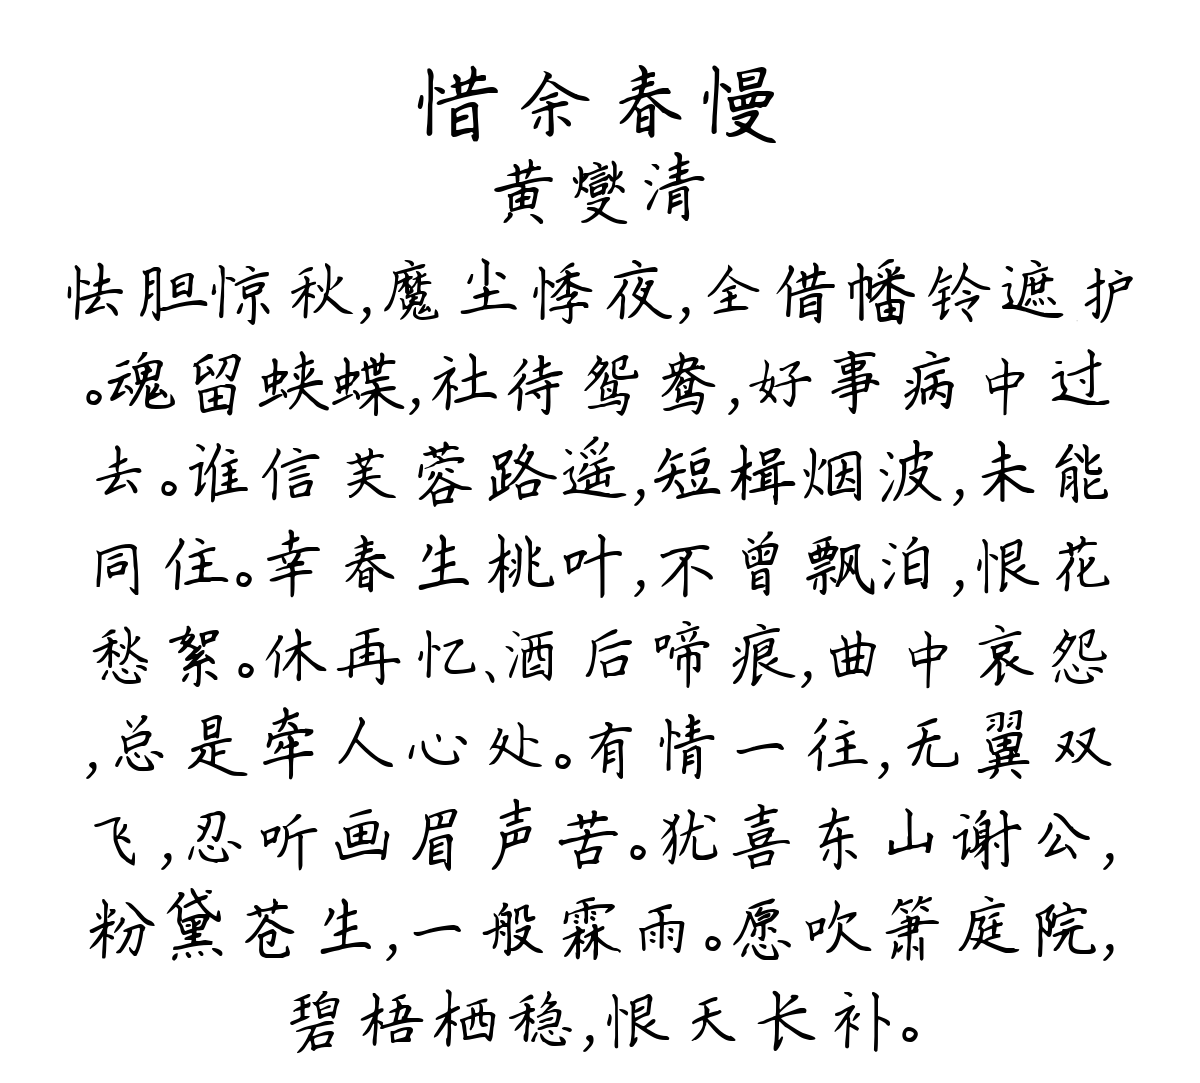 惜余春慢
黄燮清
怯胆惊秋,魔尘悸夜,全借幡铃遮护
。魂留蛱蝶,社待鸳鸯,好事病中过
去。谁信芙蓉路遥,短楫烟波,未能
同住。幸春生桃叶,不曾飘泊,恨花
愁絮。休再忆、酒后啼痕,曲中哀怨
,总是牵人心处。有情一往,无翼双
飞,忍听画眉声苦。犹喜东山谢公,
粉黛苍生,一般霖雨。愿吹箫庭院,
碧梧栖稳,恨天长补。